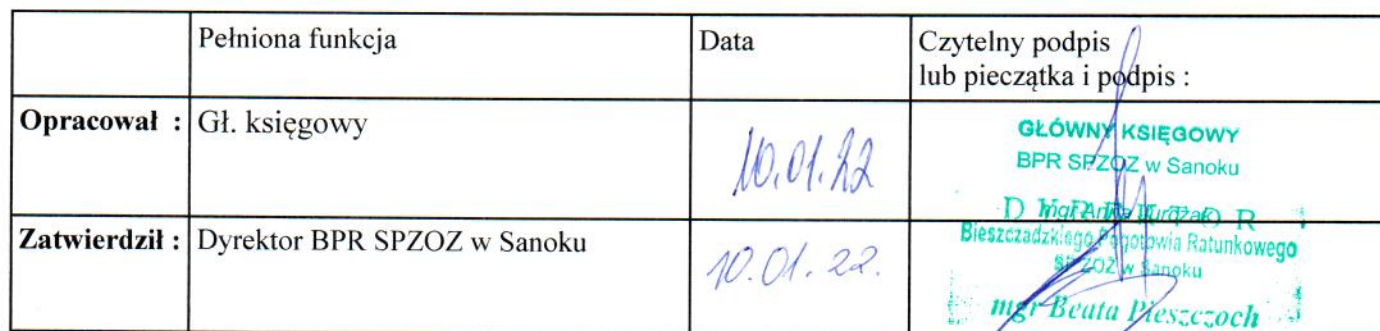 Pełniona funkcja Data Czytelny podpis
lub pieczątka i podpis :
Opracował : Gł. księgowy 10.01.22
GŁÓWNY KSIĘGOWY
BPR SPZOZ w Sanoku
mgr Anna
DYREKTOR
Zatwierdził : Dyrektor BPR SPZOZ w Sanoku 10.01.22.
Bieszczadzkiego Pogotowia Ratunkowego
SPZOZ w Sanoku
mgr Beata Pieszczoch